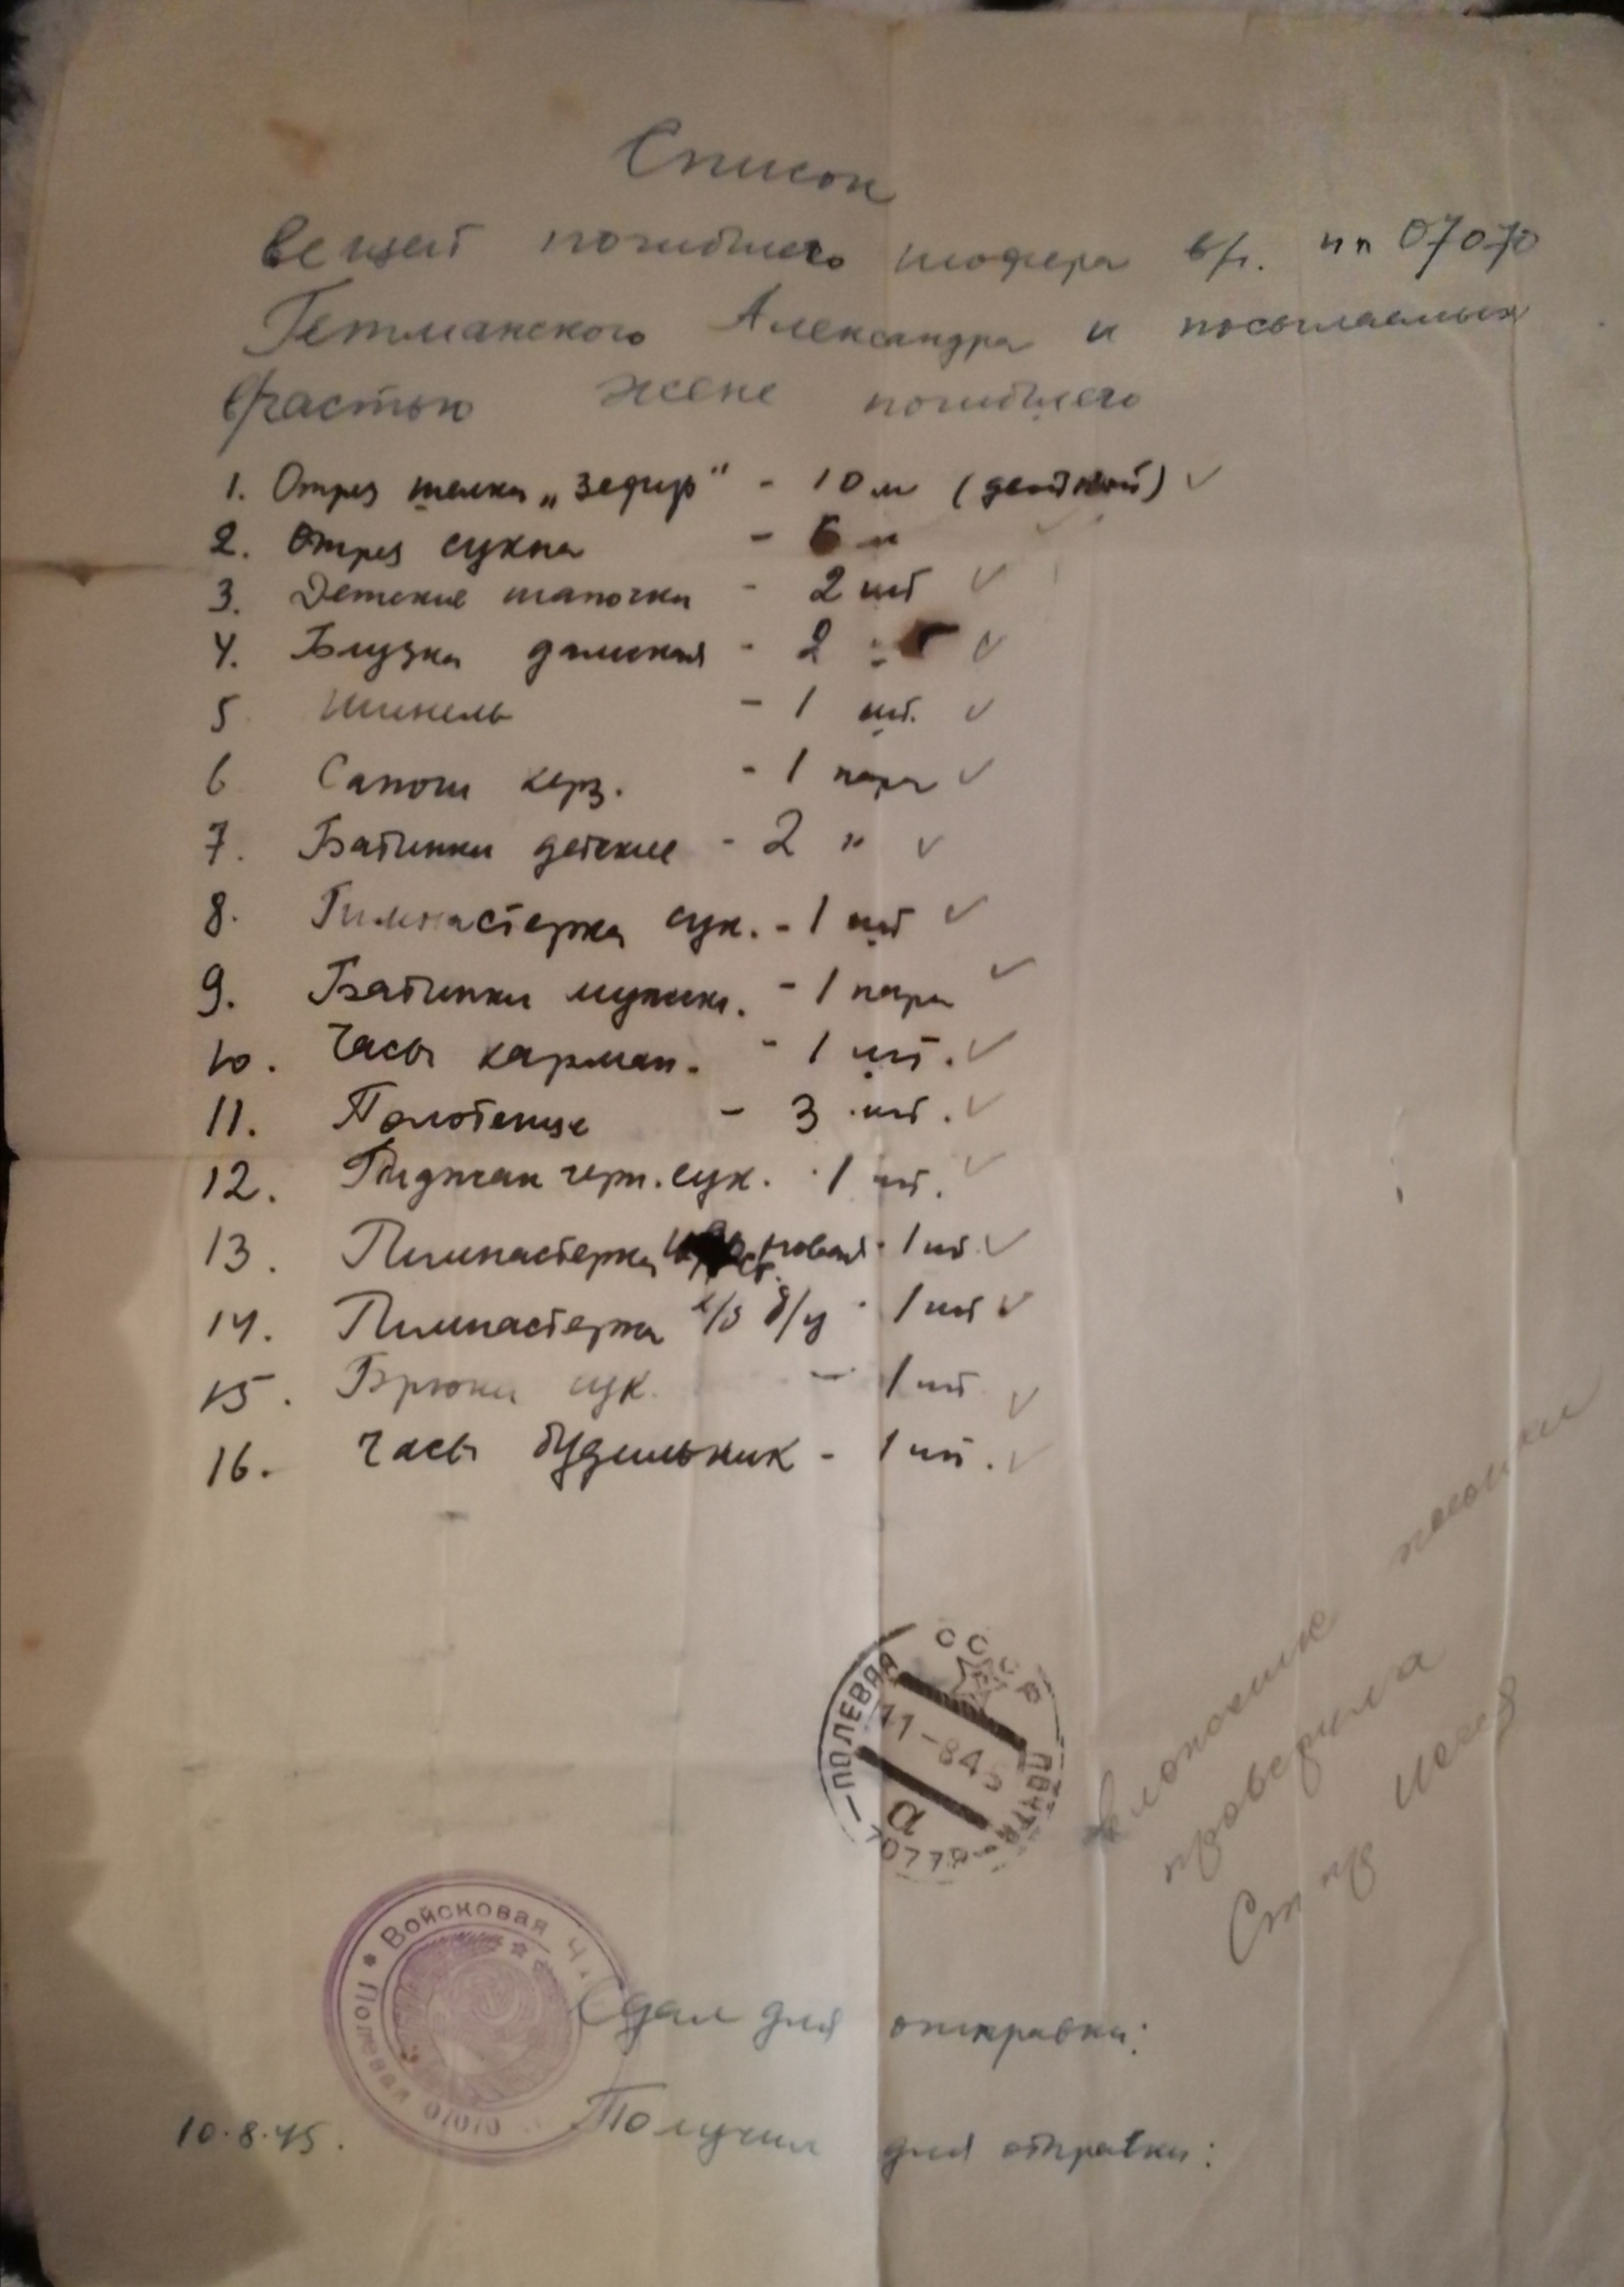 Список
вещей погибшего шофера в/ч. пп 07070
Гетманского Александра и посылаемых
в/частью жене погибшего
1. Отрез шелка „зефир" - 10 м ✓
2. Отрез сукна - 6 м ✓
3. Детские тапочки - 2 шт ✓
4. Блузка дамская - 2 ✓
5 Шинель - 1 шт. ✓
6 Сапоги керз. - 1 пара ✓
7. Батинки детские - 2 " ✓
8. Гимнастерка сук. - 1 шт ✓
9. Батинки мужск. - 1 пара ✓
10. Часы карман. - 1 шт. ✓
11. Полотенце - 3 шт. ✓
12. Пиджак черн. сук. - 1 шт. ✓
13. Гимнастерка новая - 1 шт. ✓
14. Гимнастерка х/б б/у - 1 шт ✓
15. Брюки сук. - 1 шт ✓
16. Часы будильник - 1 шт. ✓
СССР
ПОЛЕВАЯ ПОЧТА
11-845
а
вложение посылки
проверила
Ст
Войсковая Ч
Полевая 07070
Сдал для отправки:
10.8.45. Получил для отправки: